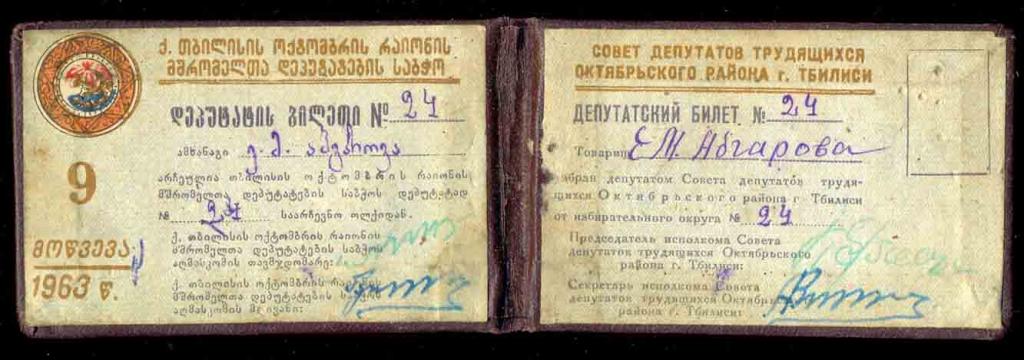 ქ. თბილისის ოქტომბრის რაიონის
მშრომელთა დეპუტატების საბჭო
დეპუტატის ბილეთი № 24
ამხანაგი ე. მ. აბგაროვა
არჩეულია თბილისის ოქტომბრის რაიონის
მშრომელთა დეპუტატების საბჭოს დეპუტატად
№ 24 საარჩევნო ოლქიდან.
ქ. თბილისის ოქტომბრის რაიონის
მშრომელთა დეპუტატების საბჭოს
აღმასკომის თავმჯდომარე:
ქ. თბილისის ოქტომბრის რაიონის
მშრომელთა დეპუტატების საბჭოს
აღმასკომის მდივანი:
9
მოწვევა
1963 წ.
СОВЕТ ДЕПУТАТОВ ТРУДЯЩИХСЯ
ОКТЯБРЬСКОГО РАЙОНА г. ТБИЛИСИ
ДЕПУТАТСКИЙ БИЛЕТ № 24
Товарищ Е М. Абгарова
избран депутатом Совета депутатов трудя-
щихся Октябрьского района г Тбилиси
от избирательного округа № 24
Председатель исполкома Совета
депутатов трудящихся Октябрьского
района г. Тбилиси:
Секретарь исполкома Совета
депутатов трудящихся Октябрьского
района г. Тбилиси: